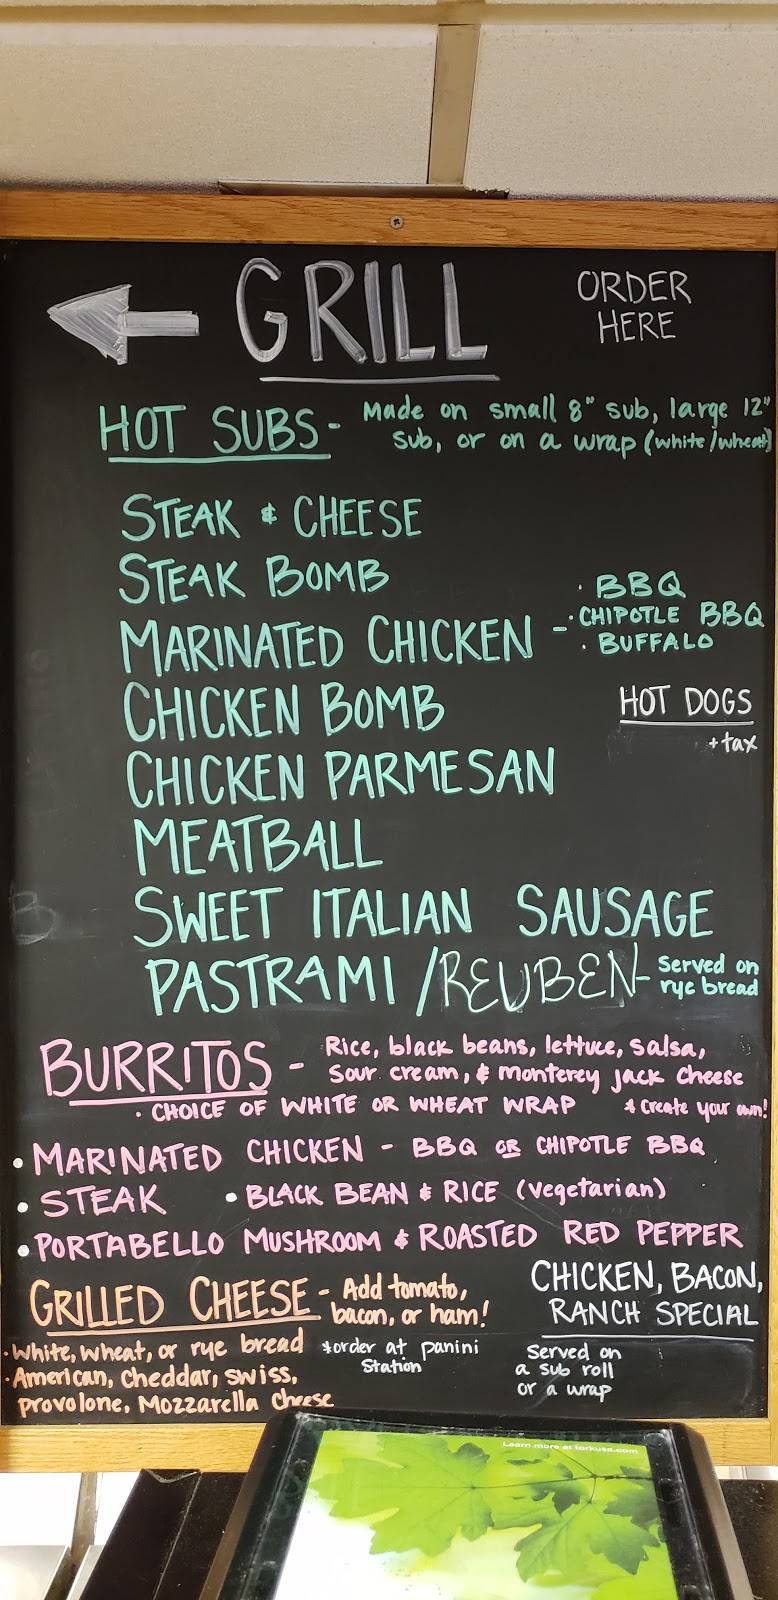 GRILL
ORDER
HERE
HOT SUBS - Made on small 8" sub, large 12"
sub, or on a wrap (white/wheat)
STEAK & CHEESE
STEAK BOMB
MARINATED CHICKEN -
· BBQ
· CHIPOTLE BBQ
· BUFFALO
CHICKEN BOMB
HOT DOGS
+tax
CHICKEN PARMESAN
MEATBALL
SWEET ITALIAN SAUSAGE
PASTRAMI / REUBEN - served on
rye bread
BURRITOS - Rice, black beans, lettuce, salsa,
sour cream, & monterey jack cheese
· CHOICE OF WHITE OR WHEAT WRAP * Create your own!
• MARINATED CHICKEN - BBQ OR CHIPOTLE BBQ
• STEAK • BLACK BEAN & RICE (vegetarian)
• PORTABELLO MUSHROOM & ROASTED RED PEPPER
GRILLED CHEESE - Add tomato,
bacon, or ham!
· White, wheat, or rye bread
· American, cheddar, swiss,
provolone, Mozzarella cheese
*order at panini
station
CHICKEN, BACON,
RANCH SPECIAL
served on
a sub roll
or a wrap
Learn more at torkusa.com